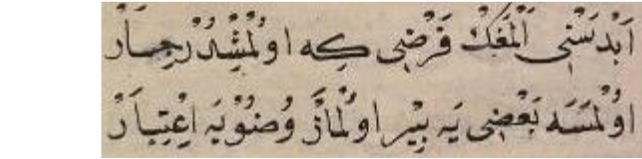 ابدستی المغك فرضی که اولمشدر جهار
اولمسه بعضی یه بیر اولماز وضویه اعتبار